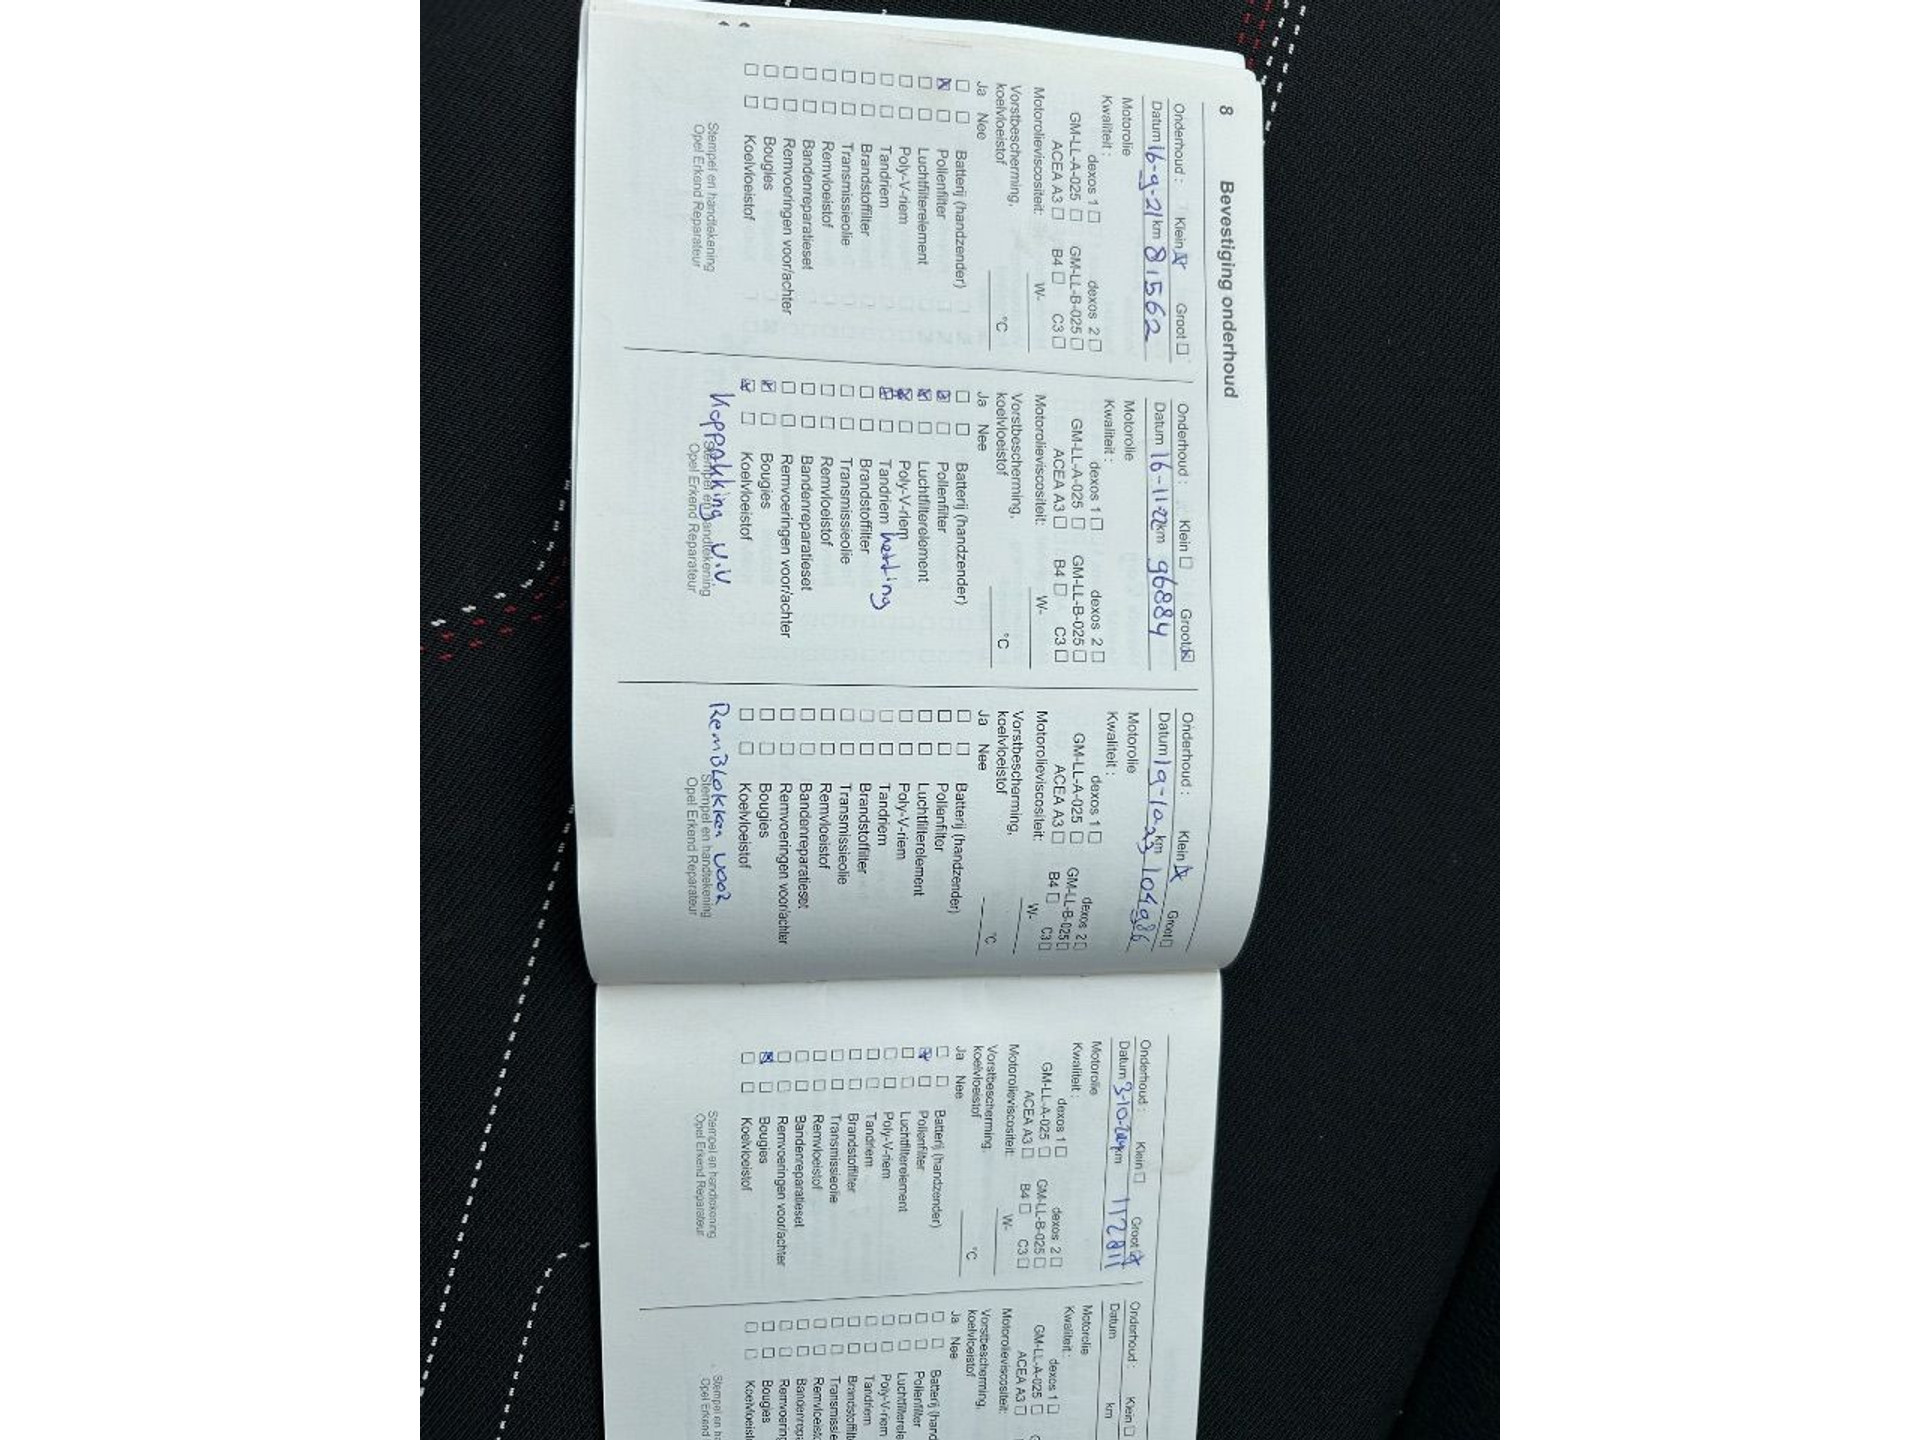 8 Bevestiging onderhoud
Onderhoud : Klein ☒ Groot ☐
Datum 16-9-21 km 81562
Motorolie
Kwaliteit :
dexos 1 ☐ dexos 2 ☐
GM-LL-A-025 ☐ GM-LL-B-025 ☐
ACEA A3 ☐ B4 ☐ C3 ☐
Motorolieviscositeit: W-
Vorstbescherming,
koelvloeistof °C
Ja Nee
☐ ☐ Batterij (handzender)
☒ ☐ Pollenfilter
☐ ☐ Luchtfilterelement
☐ ☐ Poly-V-riem
☐ ☐ Tandriem
☐ ☐ Brandstoffilter
☐ ☐ Transmissieolie
☐ ☐ Remvloeistof
☐ ☐ Bandenreparatieset
☐ ☐ Remvoeringen voor/achter
☐ ☐ Bougies
☐ ☐ Koelvloeistof
Stempel en handtekening
Opel Erkend Reparateur
Onderhoud : Klein ☐ Groot ☒
Datum 16-11-22 km 96884
Motorolie
Kwaliteit :
dexos 1 ☐ dexos 2 ☐
GM-LL-A-025 ☐ GM-LL-B-025 ☐
ACEA A3 ☐ B4 ☐ C3 ☐
Motorolieviscositeit: W-
Vorstbescherming,
koelvloeistof °C
Ja Nee
☐ ☐ Batterij (handzender)
☒ ☐ Pollenfilter
☒ ☐ Luchtfilterelement
☒ ☐ Poly-V-riem
☒ ☐ Tandriem ketting
☐ ☐ Brandstoffilter
☐ ☐ Transmissieolie
☐ ☐ Remvloeistof
☐ ☐ Bandenreparatieset
☐ ☐ Remvoeringen voor/achter
☒ ☐ Bougies
☒ ☐ Koelvloeistof
Koppakking V.V
Stempel en handtekening
Opel Erkend Reparateur
Onderhoud : Klein ☒ Groot ☐
Datum 19-10-23 km 104986
Motorolie
Kwaliteit :
dexos 1 ☐ dexos 2 ☐
GM-LL-A-025 ☐ GM-LL-B-025 ☐
ACEA A3 ☐ B4 ☐ C3 ☐
Motorolieviscositeit: W-
Vorstbescherming,
koelvloeistof °C
Ja Nee
☐ ☐ Batterij (handzender)
☐ ☐ Pollenfilter
☐ ☐ Luchtfilterelement
☐ ☐ Poly-V-riem
☐ ☐ Tandriem
☐ ☐ Brandstoffilter
☐ ☐ Transmissieolie
☐ ☐ Remvloeistof
☐ ☐ Bandenreparatieset
☐ ☐ Remvoeringen voor/achter
☐ ☐ Bougies
☐ ☐ Koelvloeistof
RemBlokken voor
Stempel en handtekening
Opel Erkend Reparateur
Onderhoud : Klein ☐ Groot ☒
Datum 3-10-2024 km 112811
Motorolie
Kwaliteit :
dexos 1 ☐ dexos 2 ☐
GM-LL-A-025 ☐ GM-LL-B-025 ☐
ACEA A3 ☐ B4 ☐ C3 ☐
Motorolieviscositeit: W-
Vorstbescherming,
koelvloeistof °C
Ja Nee
☐ ☐ Batterij (handzender)
☒ ☐ Pollenfilter
☐ ☐ Luchtfilterelement
☐ ☐ Poly-V-riem
☐ ☐ Tandriem
☐ ☐ Brandstoffilter
☐ ☐ Transmissieolie
☐ ☐ Remvloeistof
☐ ☐ Bandenreparatieset
☐ ☐ Remvoeringen voor/achter
☒ ☐ Bougies
☐ ☐ Koelvloeistof
Stempel en handtekening
Opel Erkend Reparateur
Onderhoud : Klein ☐
Datum km
Motorolie
Kwaliteit :
dexos 1 ☐
GM-LL-A-025 ☐ G
ACEA A3 ☐
Motorolieviscositeit:
Vorstbescherming,
koelvloeistof
Ja Nee
☐ ☐ Batterij (hand
☐ ☐ Pollenfilter
☐ ☐ Luchtfilterele
☐ ☐ Poly-V-riem
☐ ☐ Tandriem
☐ ☐ Brandstoffilt
☐ ☐ Transmissie
☐ ☐ Remvloeisto
☐ ☐ Bandenrepa
☐ ☐ Remvoering
☐ ☐ Bougies
☐ ☐ Koelvloeist
Stempel en ha
Opel Erkend